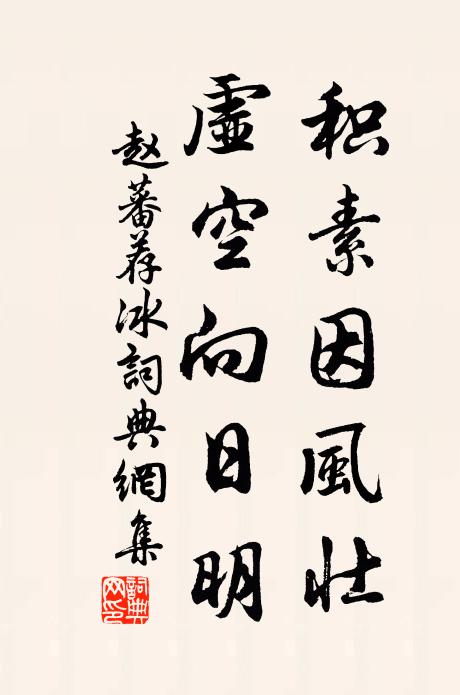 积素因風壮
虛空向日明
赵蕃荐冰詞典網集
詞典网印